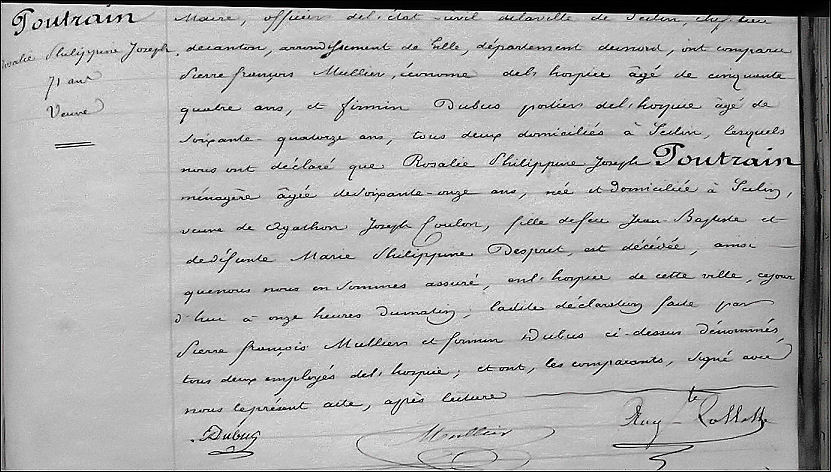 Poutrain
Rosalie Philippine Joseph
71 ans
Veuve
Maire, officier de l'état civil de la ville de Seclin, chef lieu
de canton, arrondissement de Lille, département du nord, ont comparu
Pierre françois Mullier, économe de l'hospice âgé de cinquante
quatre ans, et firmin Dubus portier de l'hospice âgé de
soixante-quatorze ans, tous deux domiciliés à Seclin, lesquels
nous ont déclaré que Rosalie Philippine Joseph Poutrain
ménagère âgée de soixante-onze ans, née et domiciliée à Seclin,
veuve de Agathon Joseph Coulon, fille de feu Jean-Baptiste et
de défunte Marie Philippine Despret, est décédée, ainsi
que nous nous en sommes assuré, en l'hospice de cette ville, cejour
d'hui à onze heures du matin; ladite déclaration faite par
Pierre françois Mullier et firmin Dubus ci-dessus dénommés,
tous deux employés de l'hospice; et ont, les comparants, signé avec
nous le présent acte, après lecture
Dubus Mullier